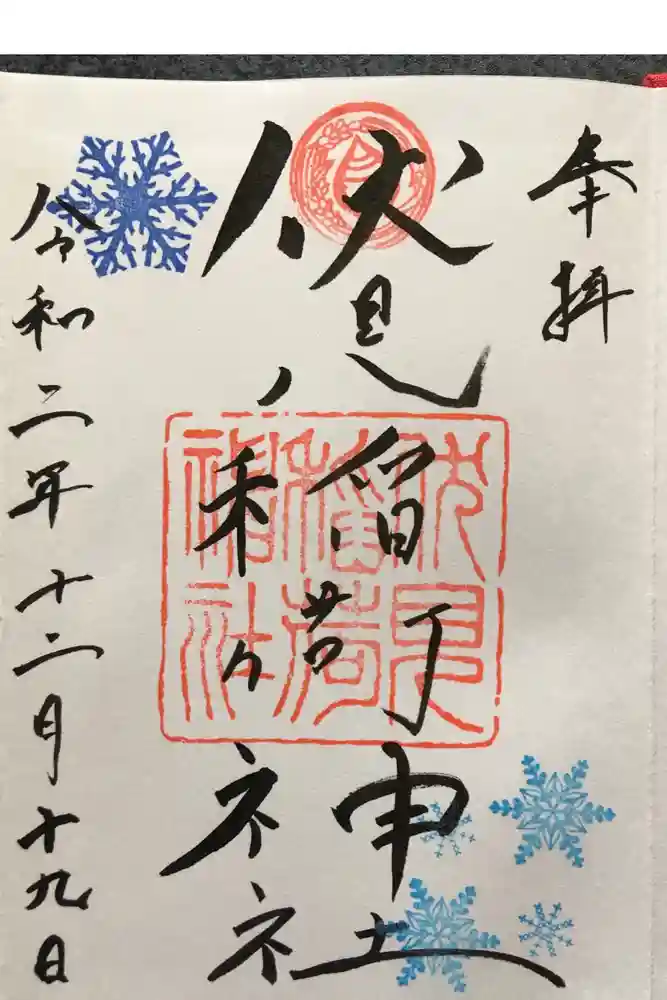 奉拝
伏見稲荷神社
伏見稲荷神社
令和二年十二月十九日